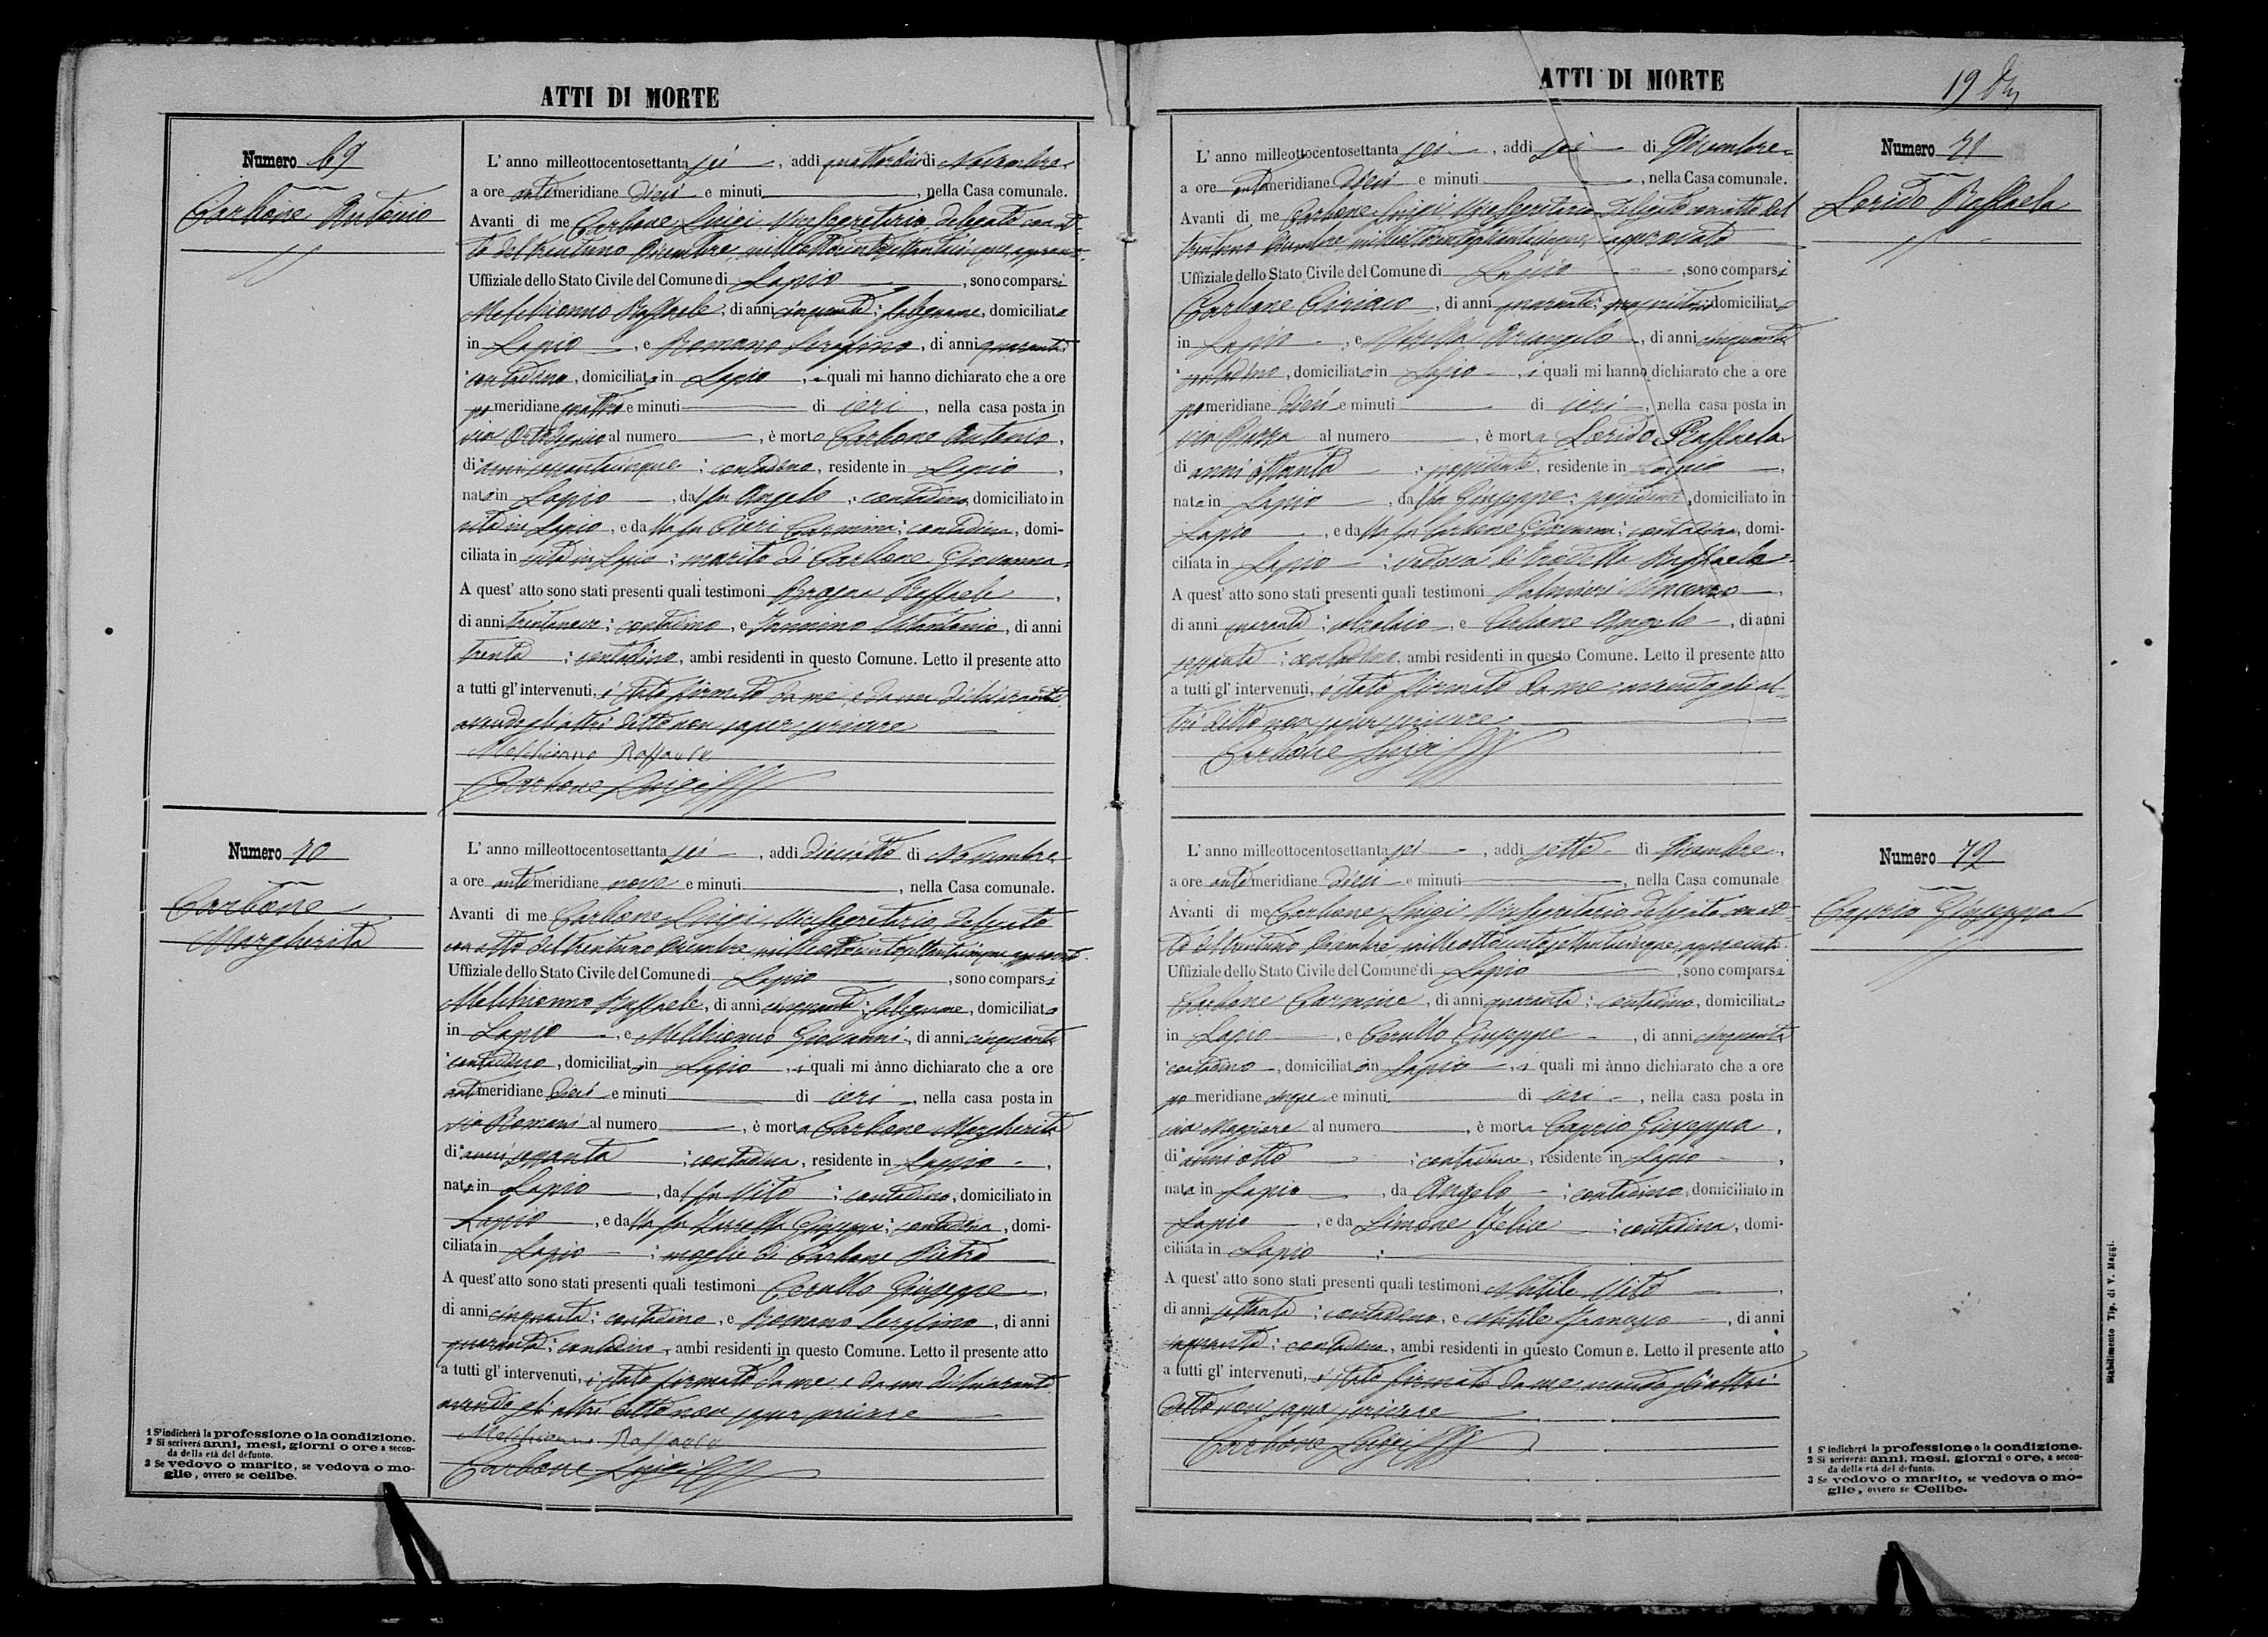 ATTI DI MORTE
Numero 69
Carbone Antonio
L' anno milleottocentosettanta sei, addi quattordici di Novembre
a ore antemeridiane dieci e minuti, nella Casa comunale.
Avanti di me Carbone Luigi Vice Segretario delegato con at-
to del trentuno Dicembre milleottocentosettantacinque, approvato
Uffiziale dello Stato Civile del Comune di Lapio, sono comparsi
Melchionno Raffaele, di anni cinquanta; falegname, domiciliato
in Lapio, e Romano Serafino, di anni quaranta
contadino, domiciliato in Lapio, i quali mi hanno dichiarato che a ore
pomeridiane quattro e minuti di ieri, nella casa posta in
via al numero, è morto Carbone Antonio,
di anni sessantacinque; contadino, residente in Lapio,
nato in Lapio, dal fu Angelo; contadino, domiciliato in
vita in Lapio, e dalla fu Carmina; contadina, domi-
ciliata in vita in Lapio; marito di Carbone Giovanna.
A quest' atto sono stati presenti quali testimoni Raffaele,
di anni trentanove; contadino, e Vitantonio, di anni
trenta; contadino, ambi residenti in questo Comune. Letto il presente atto
a tutti gl' intervenuti, è stato firmato da me, e da un dichiarante
avendo gli altri detto non saper scrivere
Melchionno Raffaele
Carbone Luigi
Numero 70
Carbone
Margherita
L' anno milleottocentosettanta sei, addi dieciotto di Novembre
a ore antemeridiane nove e minuti, nella Casa comunale.
Avanti di me Carbone Luigi, Vice Segretario delegato
con atto del trentuno Dicembre milleottocentosettantacinque approvato
Uffiziale dello Stato Civile del Comune di Lapio, sono comparsi
Melchionno Raffaele, di anni cinquanta; falegname, domiciliato
in Lapio, e Melchionno Giovanni, di anni cinquanta
contadino, domiciliato in Lapio, i quali mi ànno dichiarato che a ore
antemeridiane dieci e minuti di ieri, nella casa posta in
via Romani al numero, è morta Carbone Margherita
di anni sessanta; contadina, residente in Lapio,
nata in Lapio, dal fu Vito; contadino, domiciliato in
Lapio, e dalla fu Giuseppa; contadina, domi-
ciliata in Lapio; moglie di Carbone Pietro
A quest' atto sono stati presenti quali testimoni Cerullo Giuseppe,
di anni cinquanta; contadino, e Romano Serafino, di anni
quaranta; contadino, ambi residenti in questo Comune. Letto il presente atto
a tutti gl' intervenuti, è stato firmato da me, e da un dichiarante
avendo gli altri detto non saper scrivere
Melchionno Raffaele
Carbone Luigi
1 S'indicherà la professione o la condizione.
2 Si scriverà anni, mesi, giorni o ore a secon-
da della età del defunto.
3 Se vedovo o marito, se vedova o mo-
glie, ovvero se celibe.
ATTI DI MORTE
19
Numero 71
Lorido Raffaela
L' anno milleottocentosettanta sei, addi sei di Dicembre
a ore antemeridiane dieci e minuti, nella Casa comunale.
Avanti di me Carbone Luigi Vice Segretario delegato con atto del
trentuno Dicembre milleottocentosettantacinque, approvato
Uffiziale dello Stato Civile del Comune di Lapio, sono comparsi
Carbone Ciriaco, di anni quaranta; domiciliato
in Lapio, e Arcangelo, di anni cinquanta
contadino, domiciliato in Lapio, i quali mi hanno dichiarato che a ore
pomeridiane dieci e minuti di ieri, nella casa posta in
via Piazza al numero, è morta Lorido Raffaela
di anni ottanta; possidente, residente in Lapio,
nata in Lapio, dal fu Giuseppe; domiciliato in
Lapio, e dalla fu Carbone; contadina, domi-
ciliata in Lapio; vedova di Raffaele
A quest' atto sono stati presenti quali testimoni Palmieri Vincenzo,
di anni quaranta; calzolaio, e Carbone Angelo, di anni
sessanta; contadino, ambi residenti in questo Comune. Letto il presente atto
a tutti gl' intervenuti, è stato firmato da me avendo gli al-
tri detto non saper scrivere
Carbone Luigi
Numero 72
Caprio Giuseppa
L' anno milleottocentosettanta sei, addi sette di Dicembre,
a ore antemeridiane dieci e minuti, nella Casa comunale
Avanti di me Carbone Luigi Vice Segretario delegato con at-
to del trentuno Dicembre milleottocentosettantacinque approvato
Uffiziale dello Stato Civile del Comune di Lapio, sono comparsi
Carbone Carmine, di anni quaranta; contadino, domiciliato
in Lapio, e Cerullo Giuseppe, di anni cinquanta
contadino, domiciliato in Lapio, i quali mi ànno dichiarato che a ore
pomeridiane cinque e minuti di ieri, nella casa posta in
via Maggiore al numero, è morta Caprio Giuseppa,
di anni otto; contadina, residente in Lapio,
nata in Lapio, da Angelo; contadino, domiciliato in
Lapio, e da Simone Felice; contadina, domi-
ciliata in Lapio;
A quest' atto sono stati presenti quali testimoni Nutile Vito,
di anni settanta; contadino, e Nutile, di anni
contadino, ambi residenti in questo Comune. Letto il presente atto
a tutti gl' intervenuti, è stato firmato da me avendo gli altri
detto non saper scrivere
Carbone Luigi
1 S' indicherà la professione o la condizione.
2 Si scriverà: anni, mesi, giorni o ore, a secon-
da della età del defunto.
3 Se vedovo o marito, se vedova o mo-
glie, ovvero se Celibe.
Stabilimento Tip. di V. Maggi.